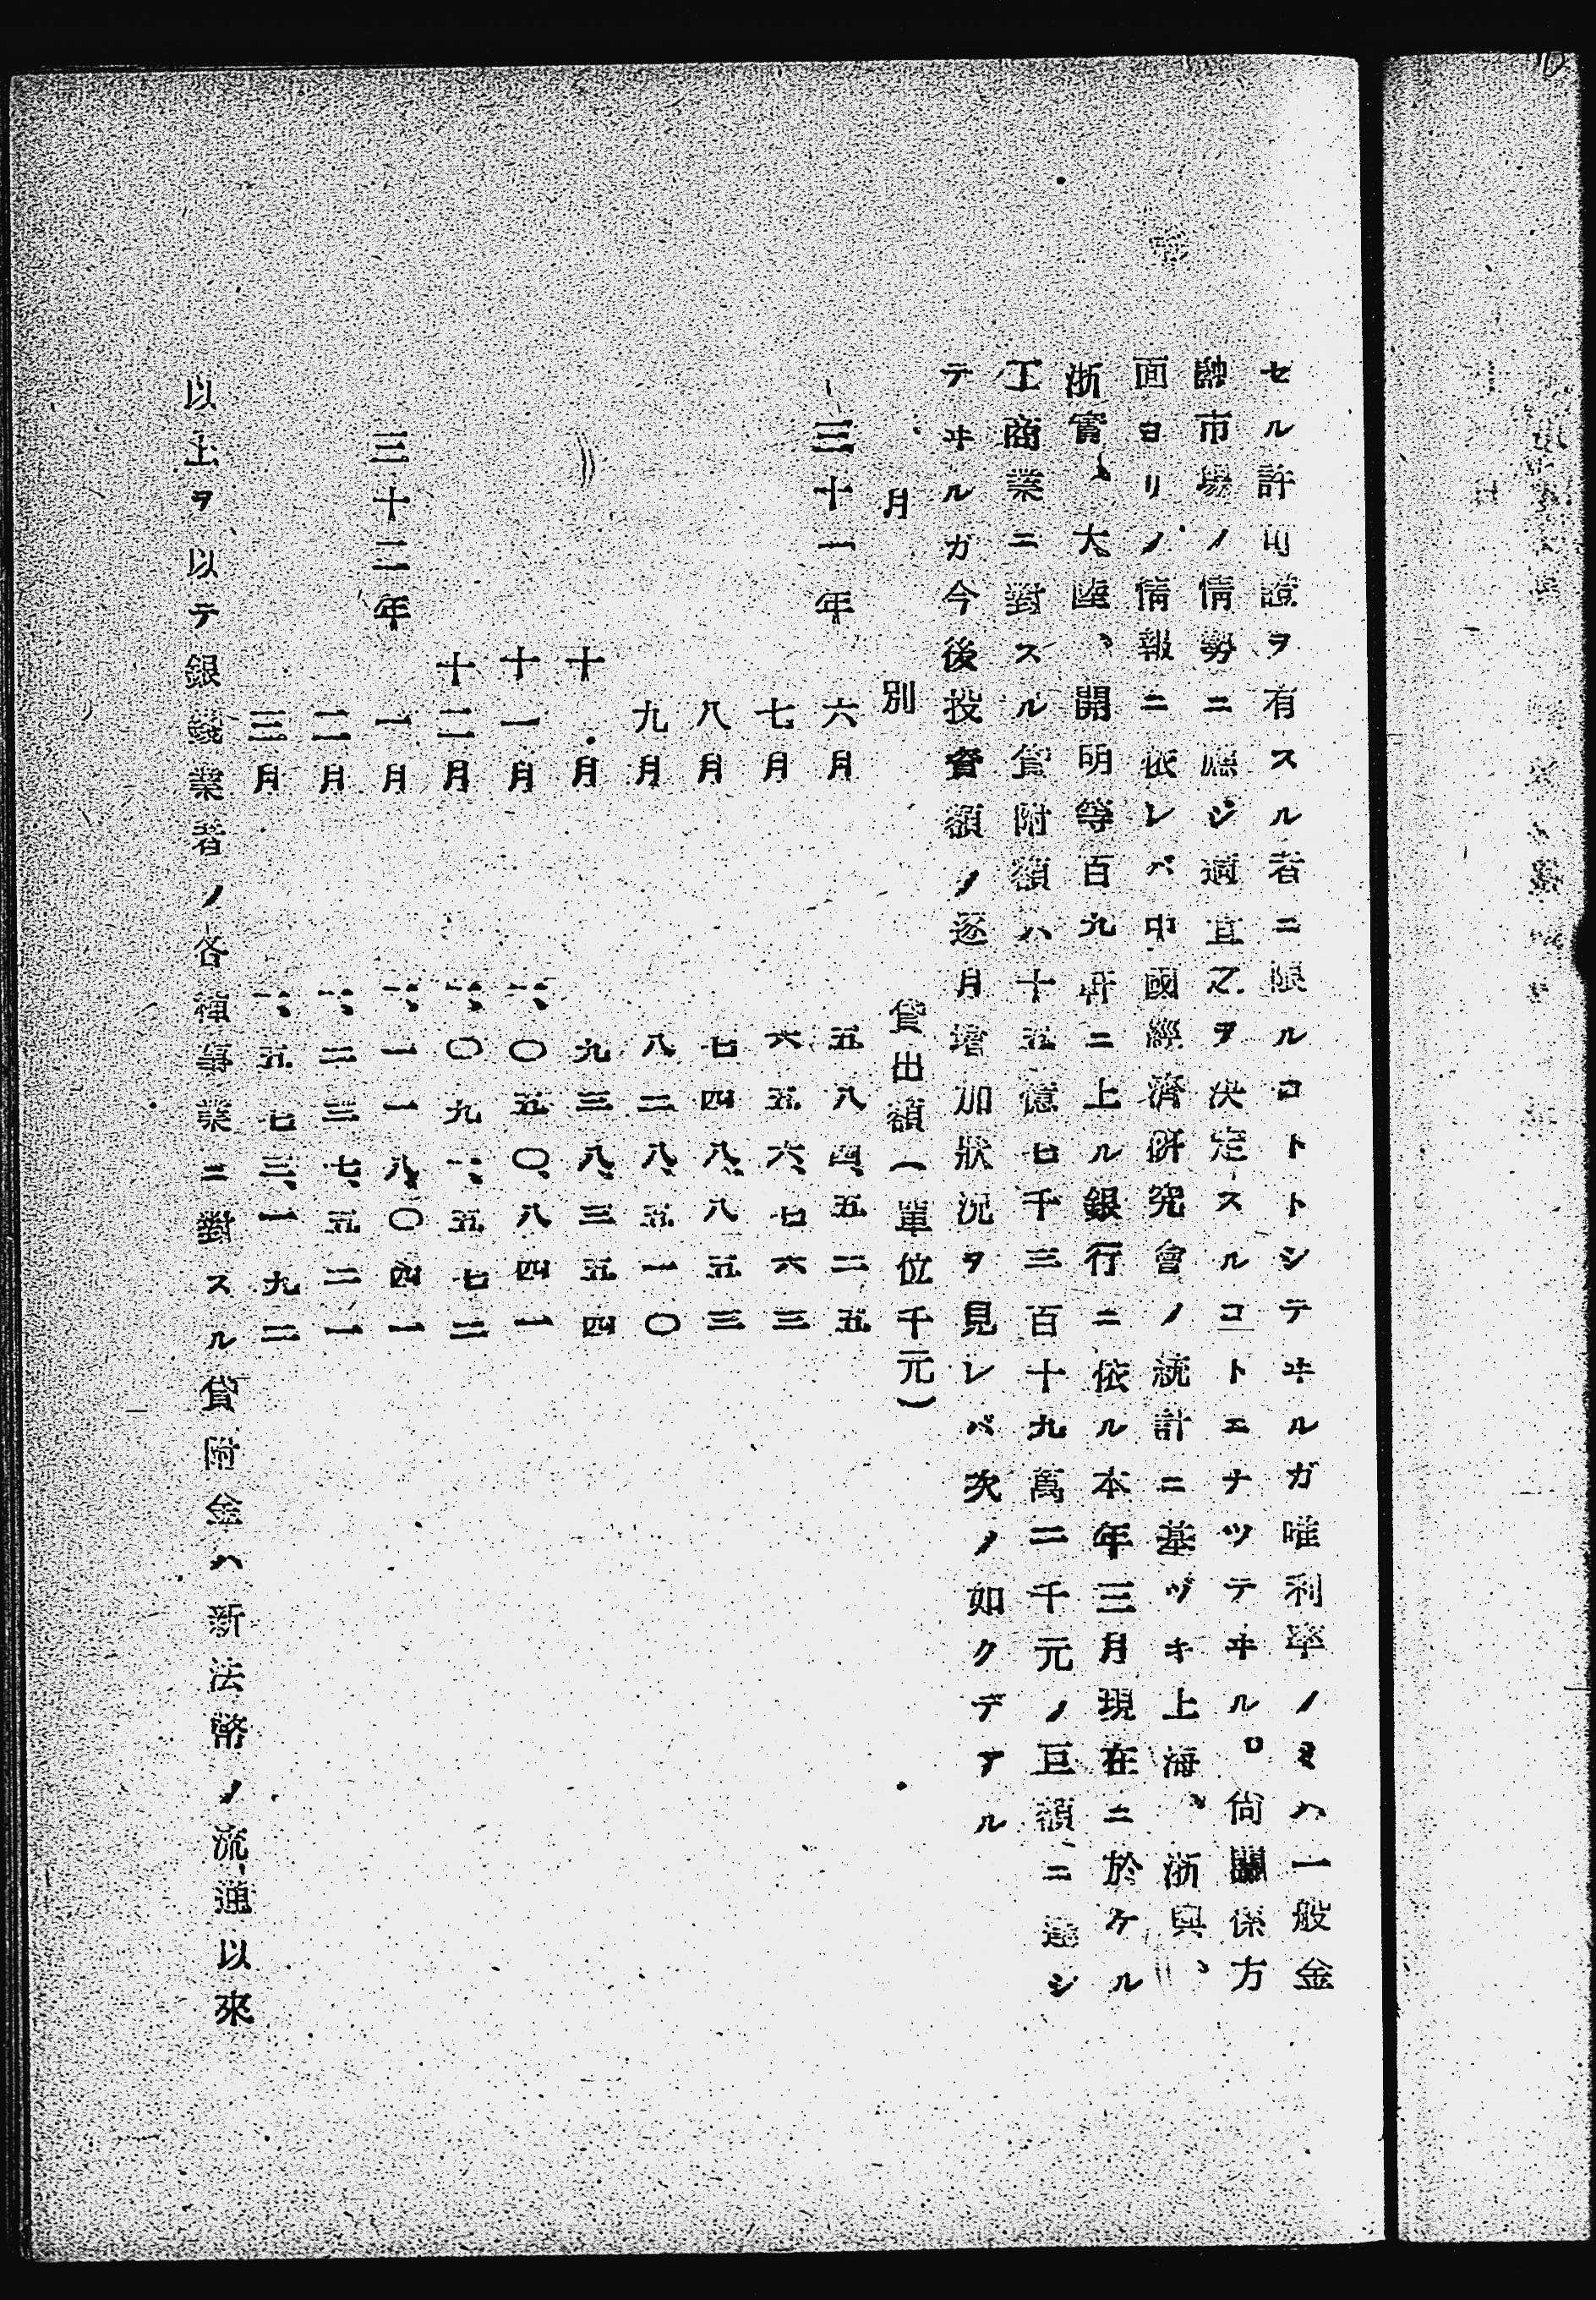 セル許可證ヲ有スル者ニ限ルコトトシテヰルガ唯利率ノミハ一般金
融市場ノ情勢ニ應ジ適宜之ヲ決定スルコトニナツテヰル。尙關係方
面ヨリノ情報ニ依レバ中國經濟硏究會ノ統計ニ基ヅキ上海、浙興、
浙實、大陸、開明等百九軒ニ上ル銀行ニ依ル本年三月現在ニ於ケル
工商業ニ對スル貸附額ハ十五億七千三百十九萬二千元ノ巨額ニ達シ
テヰルガ今後投資額ノ逐月增加狀況ヲ見レバ次ノ如クデアル
月別 貸出額(單位千元)
三十一年 六月 五八四、五二五
七月 六五六、七六三
八月 七四八、八五三
九月 八二八、五一〇
十月 九三八、三五四
十一月 一、〇五〇、八四一
十二月 一、〇九一、五七二
三十二年 一月 一、一一八、〇四一
二月 一、二三七、五二一
三月 一、五七三、一九二
以上ヲ以テ銀錢業者ノ各種事業ニ對スル貸附金ハ新法幣ノ流通以來